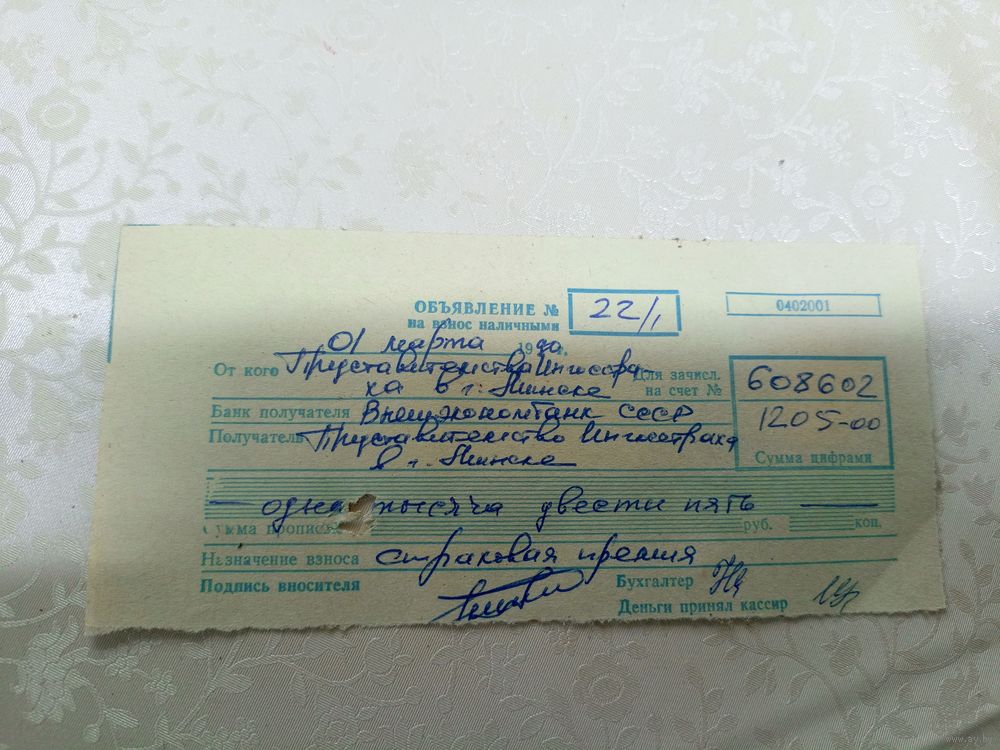 ОБЪЯВЛЕНИЕ № 22/1
0402001
на взнос наличными
01 марта 1990 г.
От кого Представительства Ингосстра-
ха в г. Минске
Для зачисл.
на счет № 608602
Банк получателя Внешэкономбанк СССР
1205-00
Получатель Представительство Ингосстраха
в г. Минске
Сумма цифрами
одна тысяча двести пять
Сумма прописью руб. коп.
Назначение взноса страховая премия
Подпись вносителя
Бухгалтер
Деньги принял кассир
www.ay.by